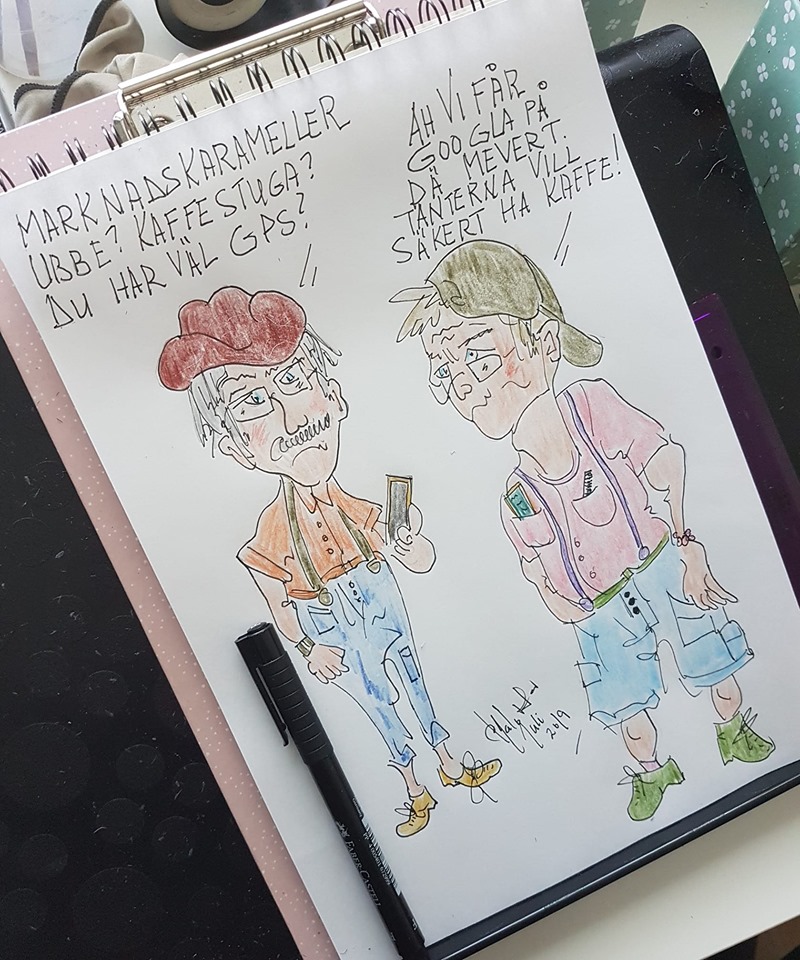 MARKNADSKARAMELLER
UBBE? KAFFESTUGA?
DU HAR VÄL GPS?
ÄH VI FÅR
GOOGLA PÅ
DÄ MEVERT.
TANTERNA VILL
SÄKERT HA KAFFE!
Juli
2019
FABER-CASTELL